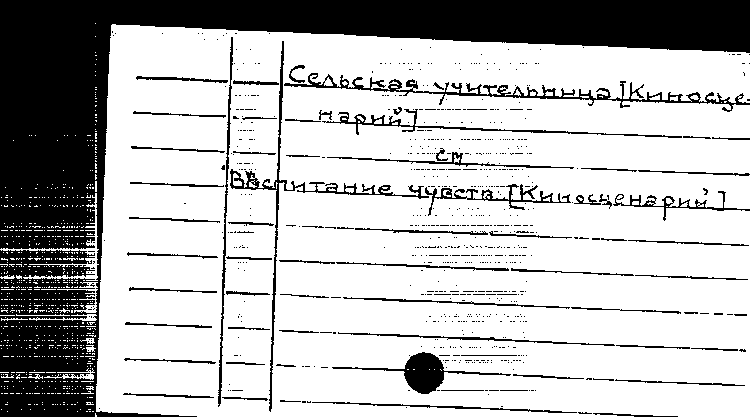 Сельская учительница [Киносце-
нарий]
см
Воспитание чувств [Киносценарий]